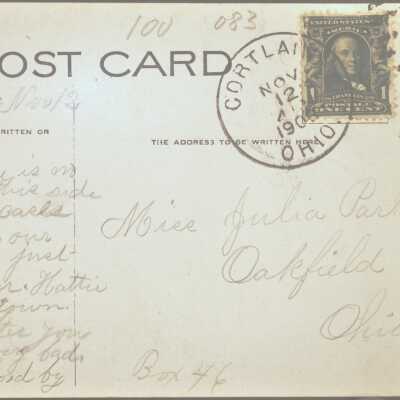 100 083
POST CARD
UNITED STATES
OF AMERICA
1 1
POSTAGE
ONE CENT
CORTLAN
NOV
12
190
OHIO.
Nov 12
WRITTEN ON
THE ADDRESS TO BE WRITTEN HERE
is no
this side
our
just
Hattie
town.
you
by
Miss Julia Park
Oakfield
Ohio
Box 46